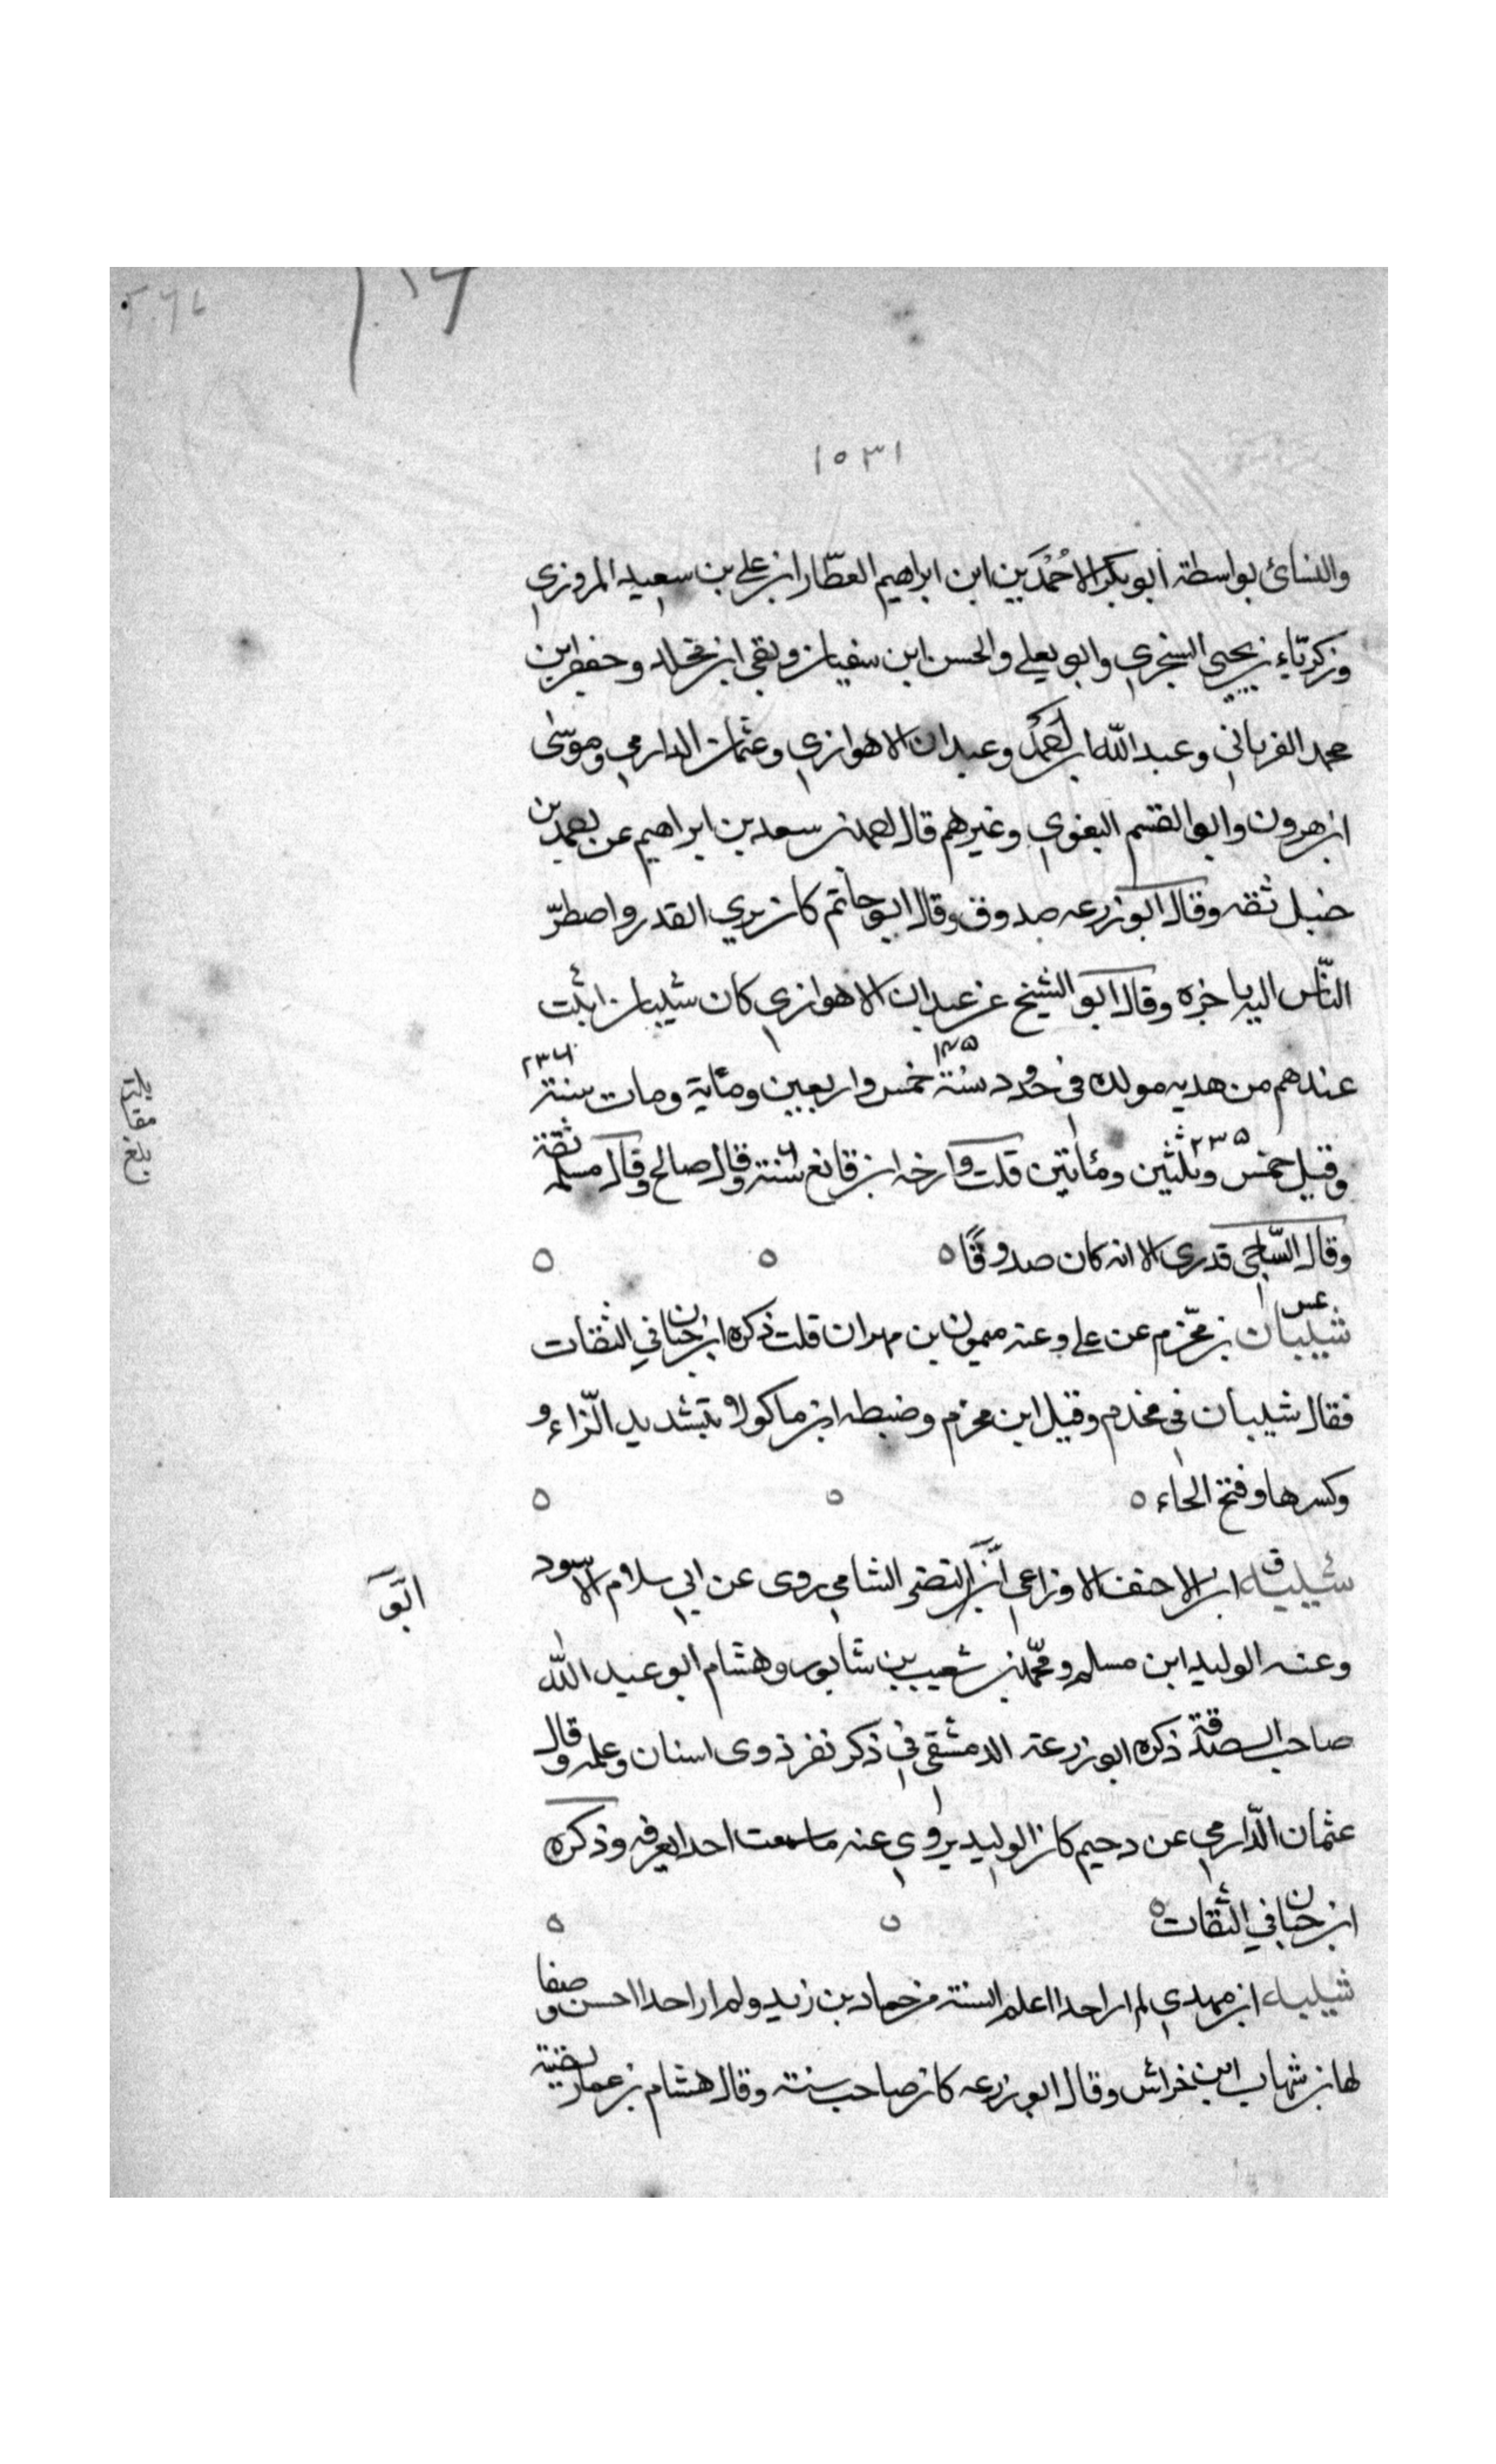 ١٥٣١
والنسائ بواسطة ابو بكر الاحمدين ابن ابراهيم العطار ابن علي بن سعيد المروزي
وزكرياء بن يحيى السنجري وابو يعلى والحسن ابن سفيان وبقي ابن مخلد وجعفر ابن
محمد الفريابي وعبد الله ابن احمد وعبدان الاهوازي وعثمان الدارمي وموسى
ابن هرون وابو القسم البغوي وغيرهم قال احمد بن سعد بن ابراهيم عن احمد بن
حنبل ثقه وقال ابو زرعه صدوق وقال ابو حاتم كان يري القدر واضطرّ
النّاس اليه باخره وقال ابو الشيخ عن عبدان الاهوازي كان شيبان اثبت
عندهم من هدبه مولده في حدود سنة ١٤٥ خمس واربعين ومأية ومات سنة ٢٣٦
وقيل خمس ٢٣٥ وثلثين ومأتين قلت وارخه ابن قانع سنة وقال صالح وقال مسلمه ثقة
وقال السّاجي قدري الا انه كان صدوقًا
عس
شيبان بن مخّرم عن علي وعنه ميمون بن مهران قلت ذكره ابن حبان في الثقات
فقال شيبان في مخدم وقيل ابن محزم وضبطه ابن ماكولا بتشديد الزّاء و
وكسرها وفتح الحاء
ق
شيبه ابن الاحنف الاوزاعي ابو النضر الشامي روى عن ابي سلام الاسود
وعنه الوليد ابن مسلم ومحمّد بن شعيب بن شابور وهشام ابو عبد الله
صاحب الصدقة ذكره ابو زرعة الدمشقي في ذكر نفر ذوى اسنان وعلم وقال
عثمان الدّارمي عن دحيم كان الوليد يروي عنه ما سمعت احدا يعرفه وذكره
ابن حبان في الثقات
شيبه ابن مهدي لم ار احدا اعلم السنة من حماد بن زيد ولم ار احدا احسن وصفا
لها من شهاب ابن خراش وقال ابو زرعه كان صاحب سنة وقال هشام بن عمار لقيته
بلغ مقابلة